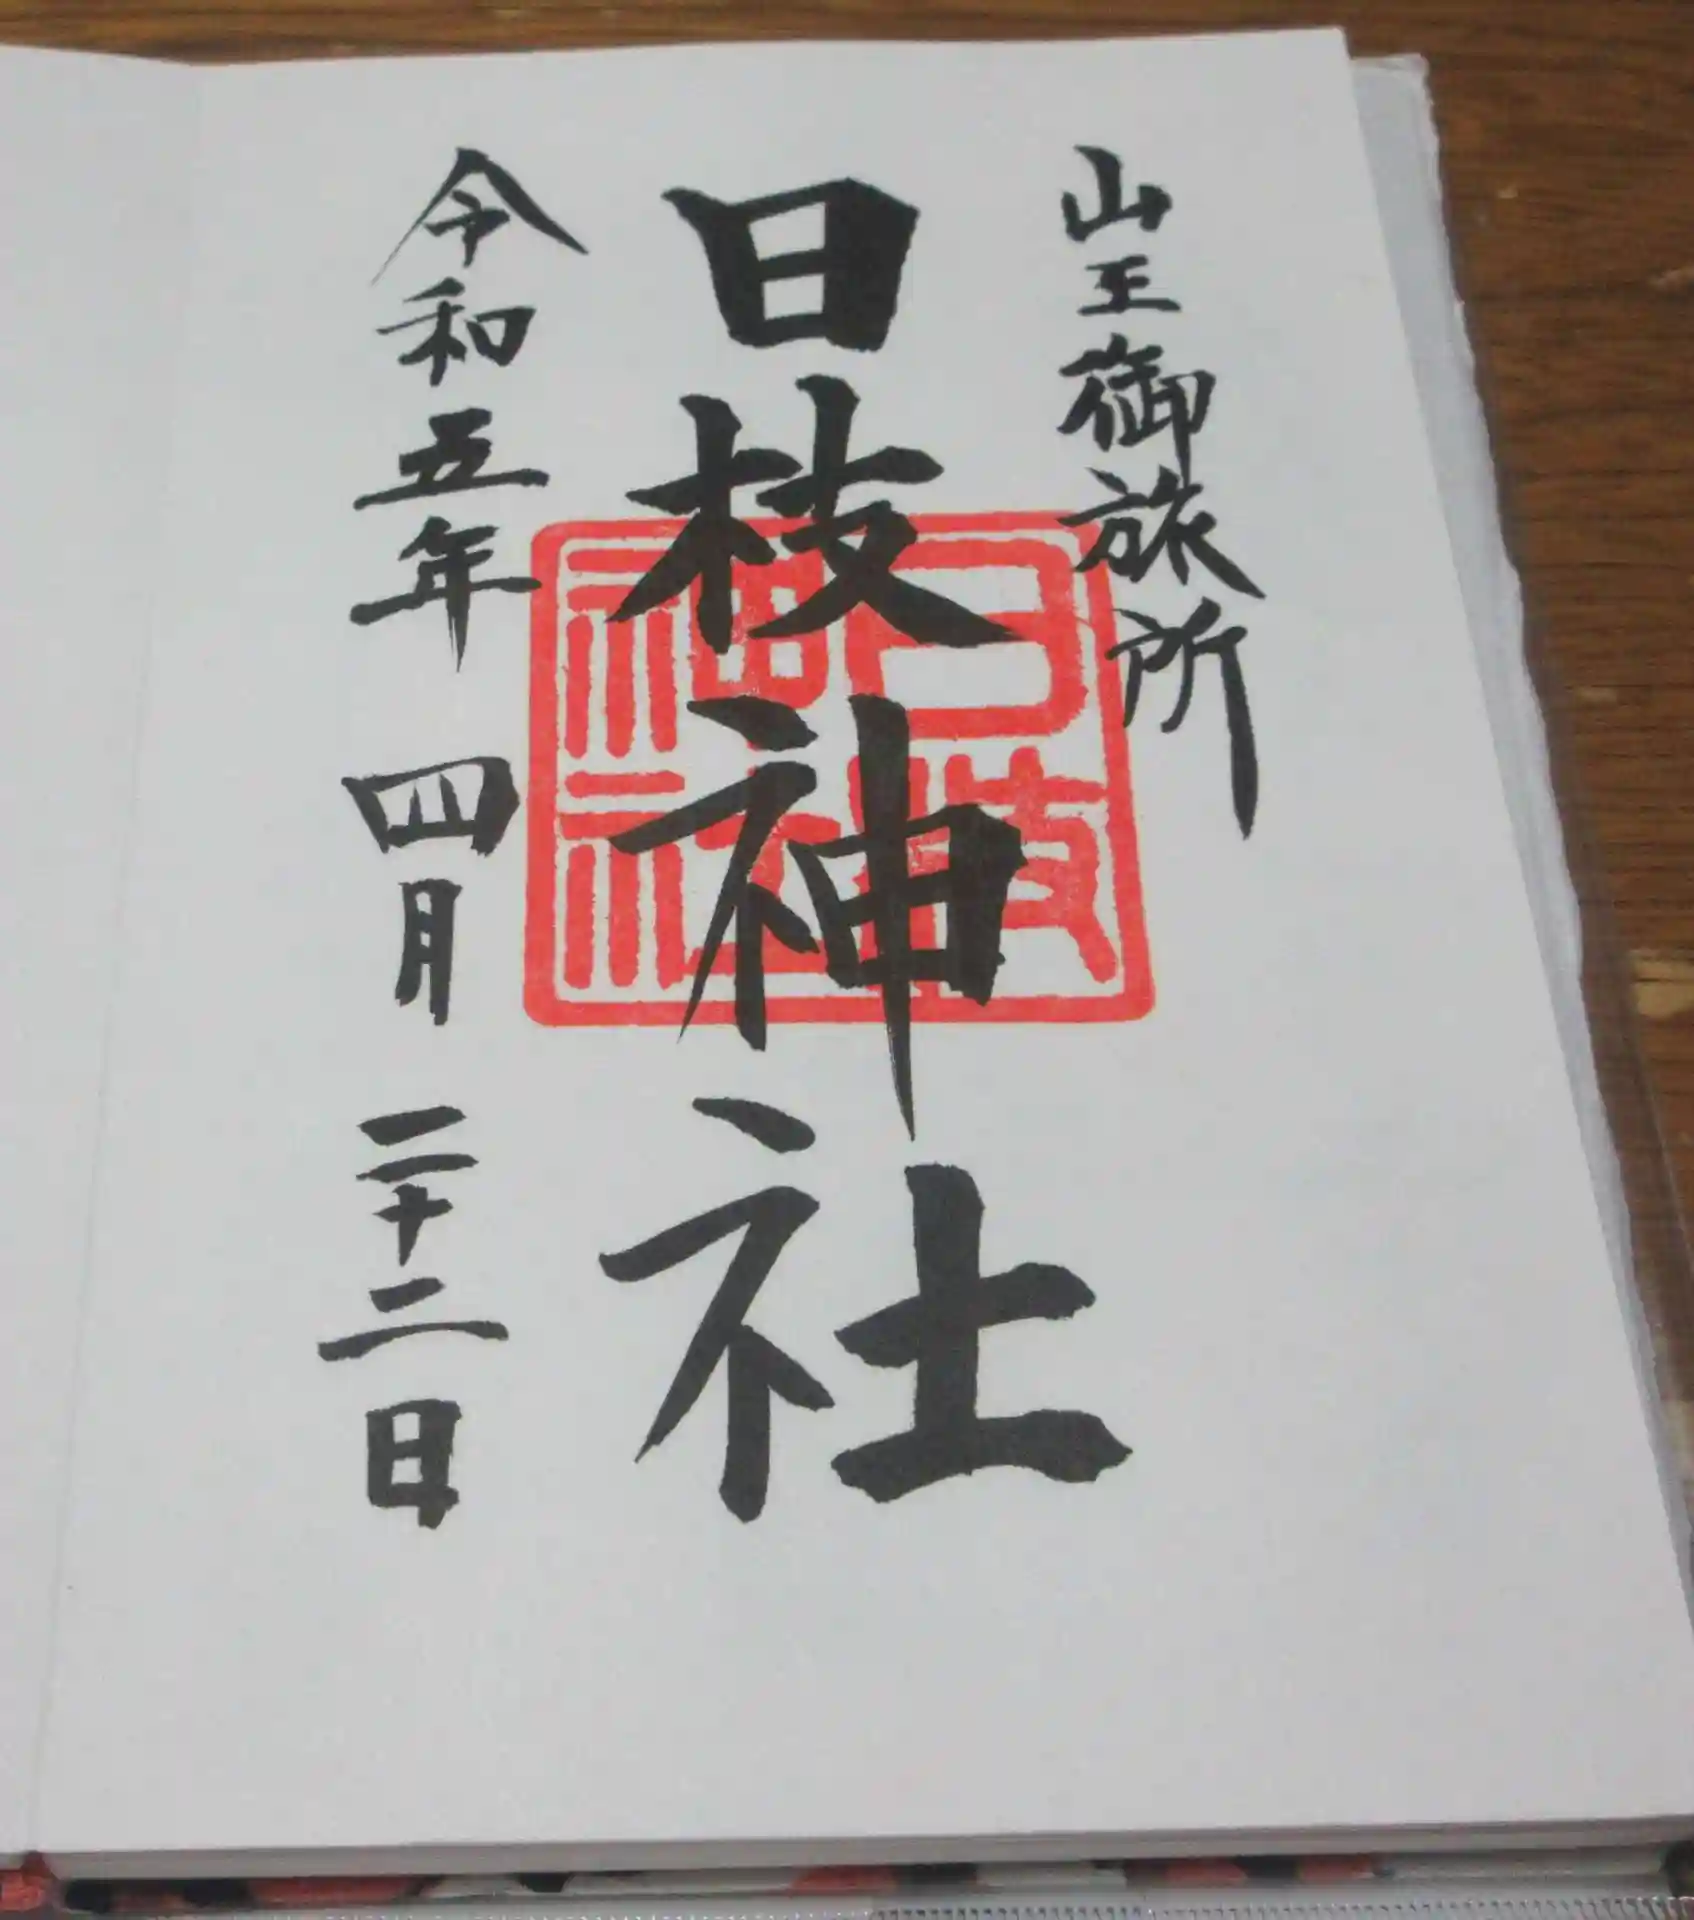 山王御旅所
日枝神社
日枝神社
令和五年 四月 二十二日